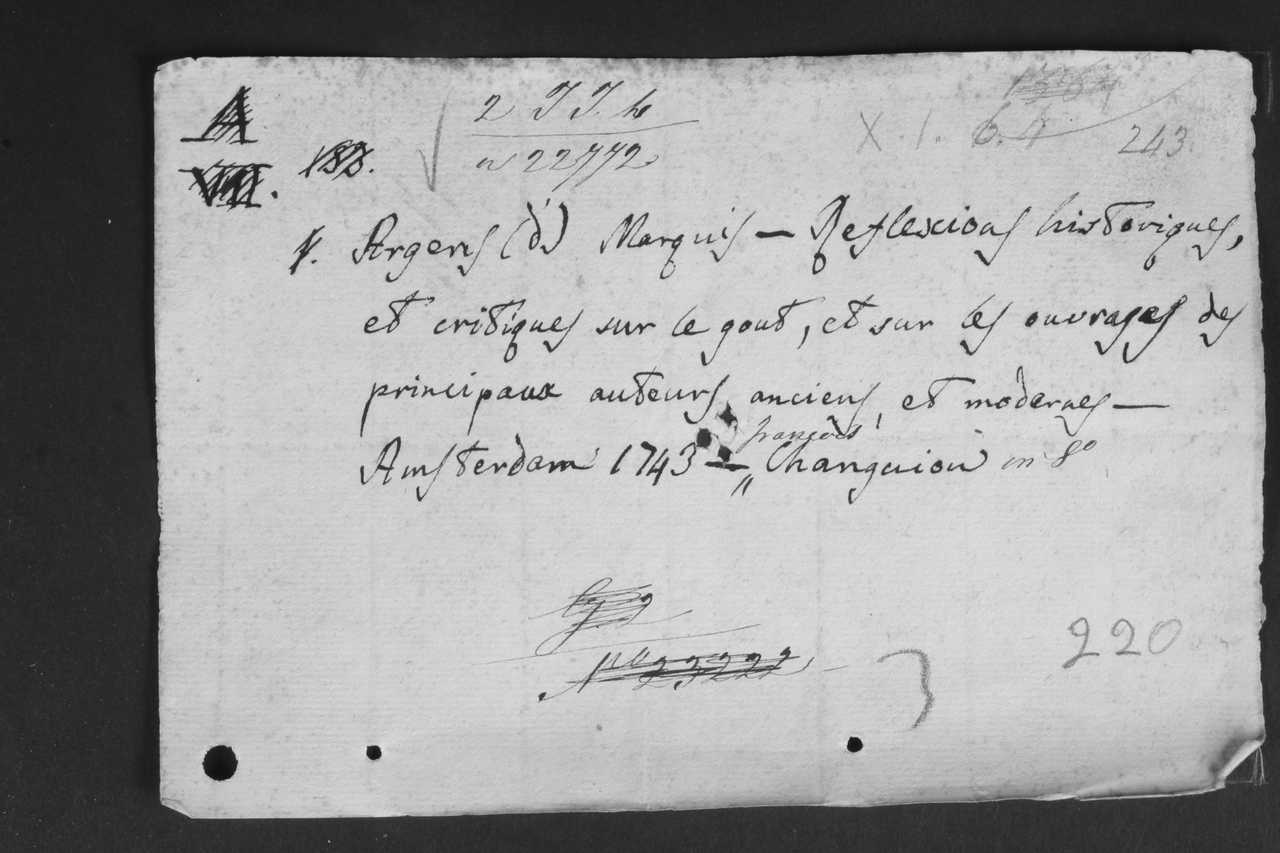 A
2 J J. h
X . 1 . 6. 4
243.
n 22772
188.
VIII.
1. Argens (d') Marquis — Reflexions historiques,
et critiques sur le gout, et sur les ouvrages des
principaux auteurs anciens, et modernes —
françois
Amsterdam 1743 — „ Changuion in 8º
Nº 23222
220